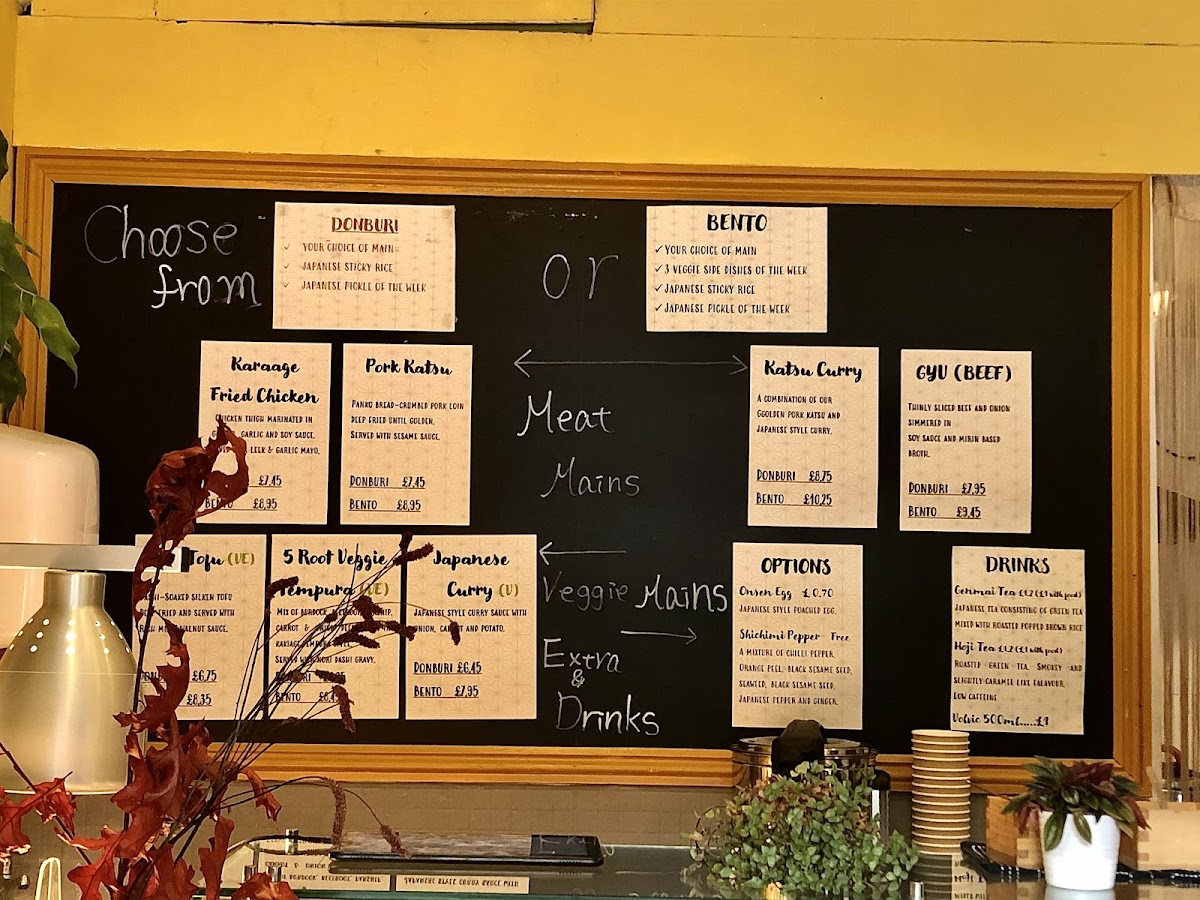 Choose
from
DONBURI
✓ YOUR CHOICE OF MAIN
✓ JAPANESE STICKY RICE
✓ JAPANESE PICKLE OF THE WEEK
or
BENTO
✓ YOUR CHOICE OF MAIN
✓ 3 VEGGIE SIDE DISHES OF THE WEEK
✓ JAPANESE STICKY RICE
✓ JAPANESE PICKLE OF THE WEEK
Karaage
Fried Chicken
CHICKEN THIGH MARINATED IN
GARLIC AND SOY SAUCE.
LEEK & GARLIC MAYO.
£7,45
BENTO £8,95
Pork Katsu
PANKO BREAD-CRUMBED PORK LOIN
DEEP FRIED UNTIL GOLDEN.
SERVED WITH SESAME SAUCE.
DONBURI £7,45
BENTO £8,95
Meat
Mains
Katsu Curry
A COMBINATION OF OUR
GGOLDEN PORK KATSU AND
JAPANESE STYLE CURRY.
DONBURI £8,75
BENTO £10,25
GYU (BEEF)
THINLY SLICED BEEF AND ONION
SIMMERED IN
SOY SAUCE AND MIRIN BASED
BROTH.
DONBURI £7,95
BENTO £9,45
Tofu (VE)
SILKEN TOFU
FRIED AND SERVED WITH
WALNUT SAUCE.
£6,75
£8,35
5 Root Veggie
Tempura (VE)
MIX OF BURDOCK,
CARROT &
TEMPURA STYLE.
SERVED WITH DASHI GRAVY.
BENTO
Japanese
Curry (V)
JAPANESE STYLE CURRY SAUCE WITH
ONION, CARROT AND POTATO.
DONBURI £6,45
BENTO £7,95
Veggie Mains
Extra
&
Drinks
OPTIONS
Onsen Egg £0,70
JAPANESE STYLE POACHED EGG.
Shichimi Pepper Free
A MIXTURE OF CHILLI PEPPER,
ORANGE PEEL, BLACK SESAME SEED,
SEAWEED, BLACK SESAME SEED,
JAPANESE PEPPER AND GINGER.
DRINKS
Genmai Tea £1.2 (£1 with food)
JAPANESE TEA CONSISTING OF GREEN TEA
MIXED WITH ROASTED POPPED BROWN RICE
Hoji Tea £1.2 (£1 with food)
ROASTED GREEN TEA. SMOKEY AND
SLIGHTLY CARAMEL LIKE FALAVOUR.
LOW CAFFEINE
Volvic 500ml.....£1